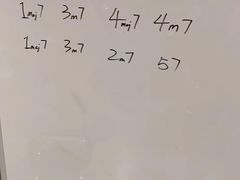 1maj7 3m7 4maj7 4m7
1maj7 3m7 2m7 57